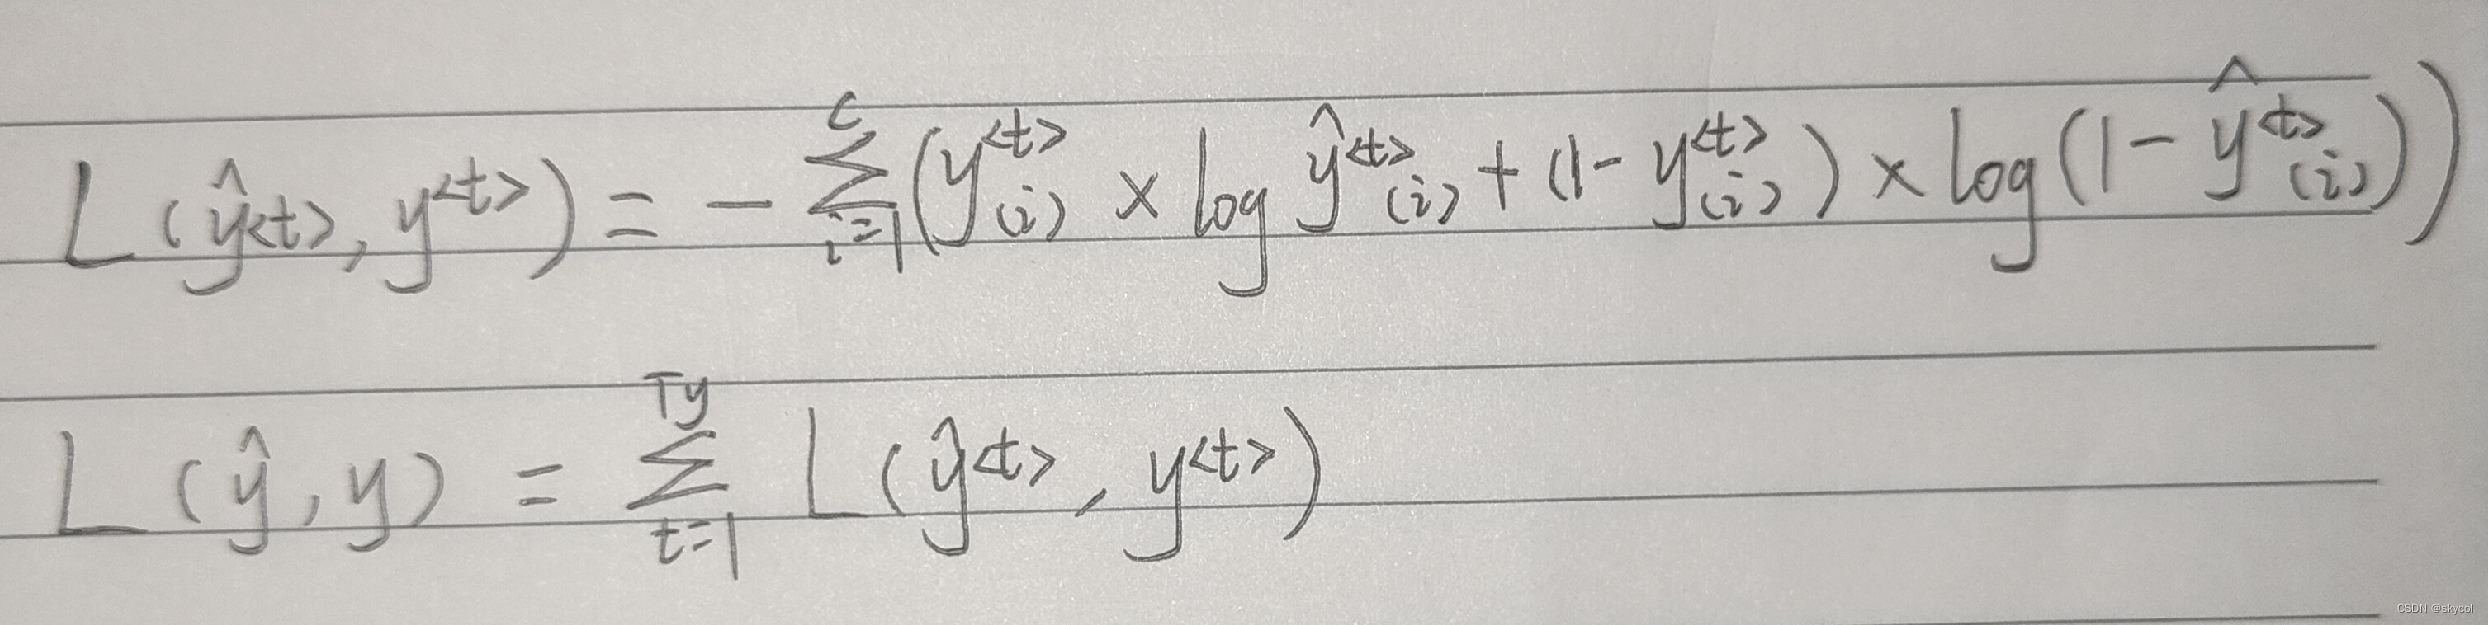 L(ŷ<t>, y<t>) = - ∑_{i=1}^{c} (y_{(i)}^{<t>} × log ŷ_{(i)}^{<t>} + (1 - y_{(i)}^{<t>}) × log(1 - ŷ_{(i)}^{<t>}))
L(ŷ, y) = ∑_{t=1}^{Ty} L(ŷ<t>, y<t>)
CSDN @skycol